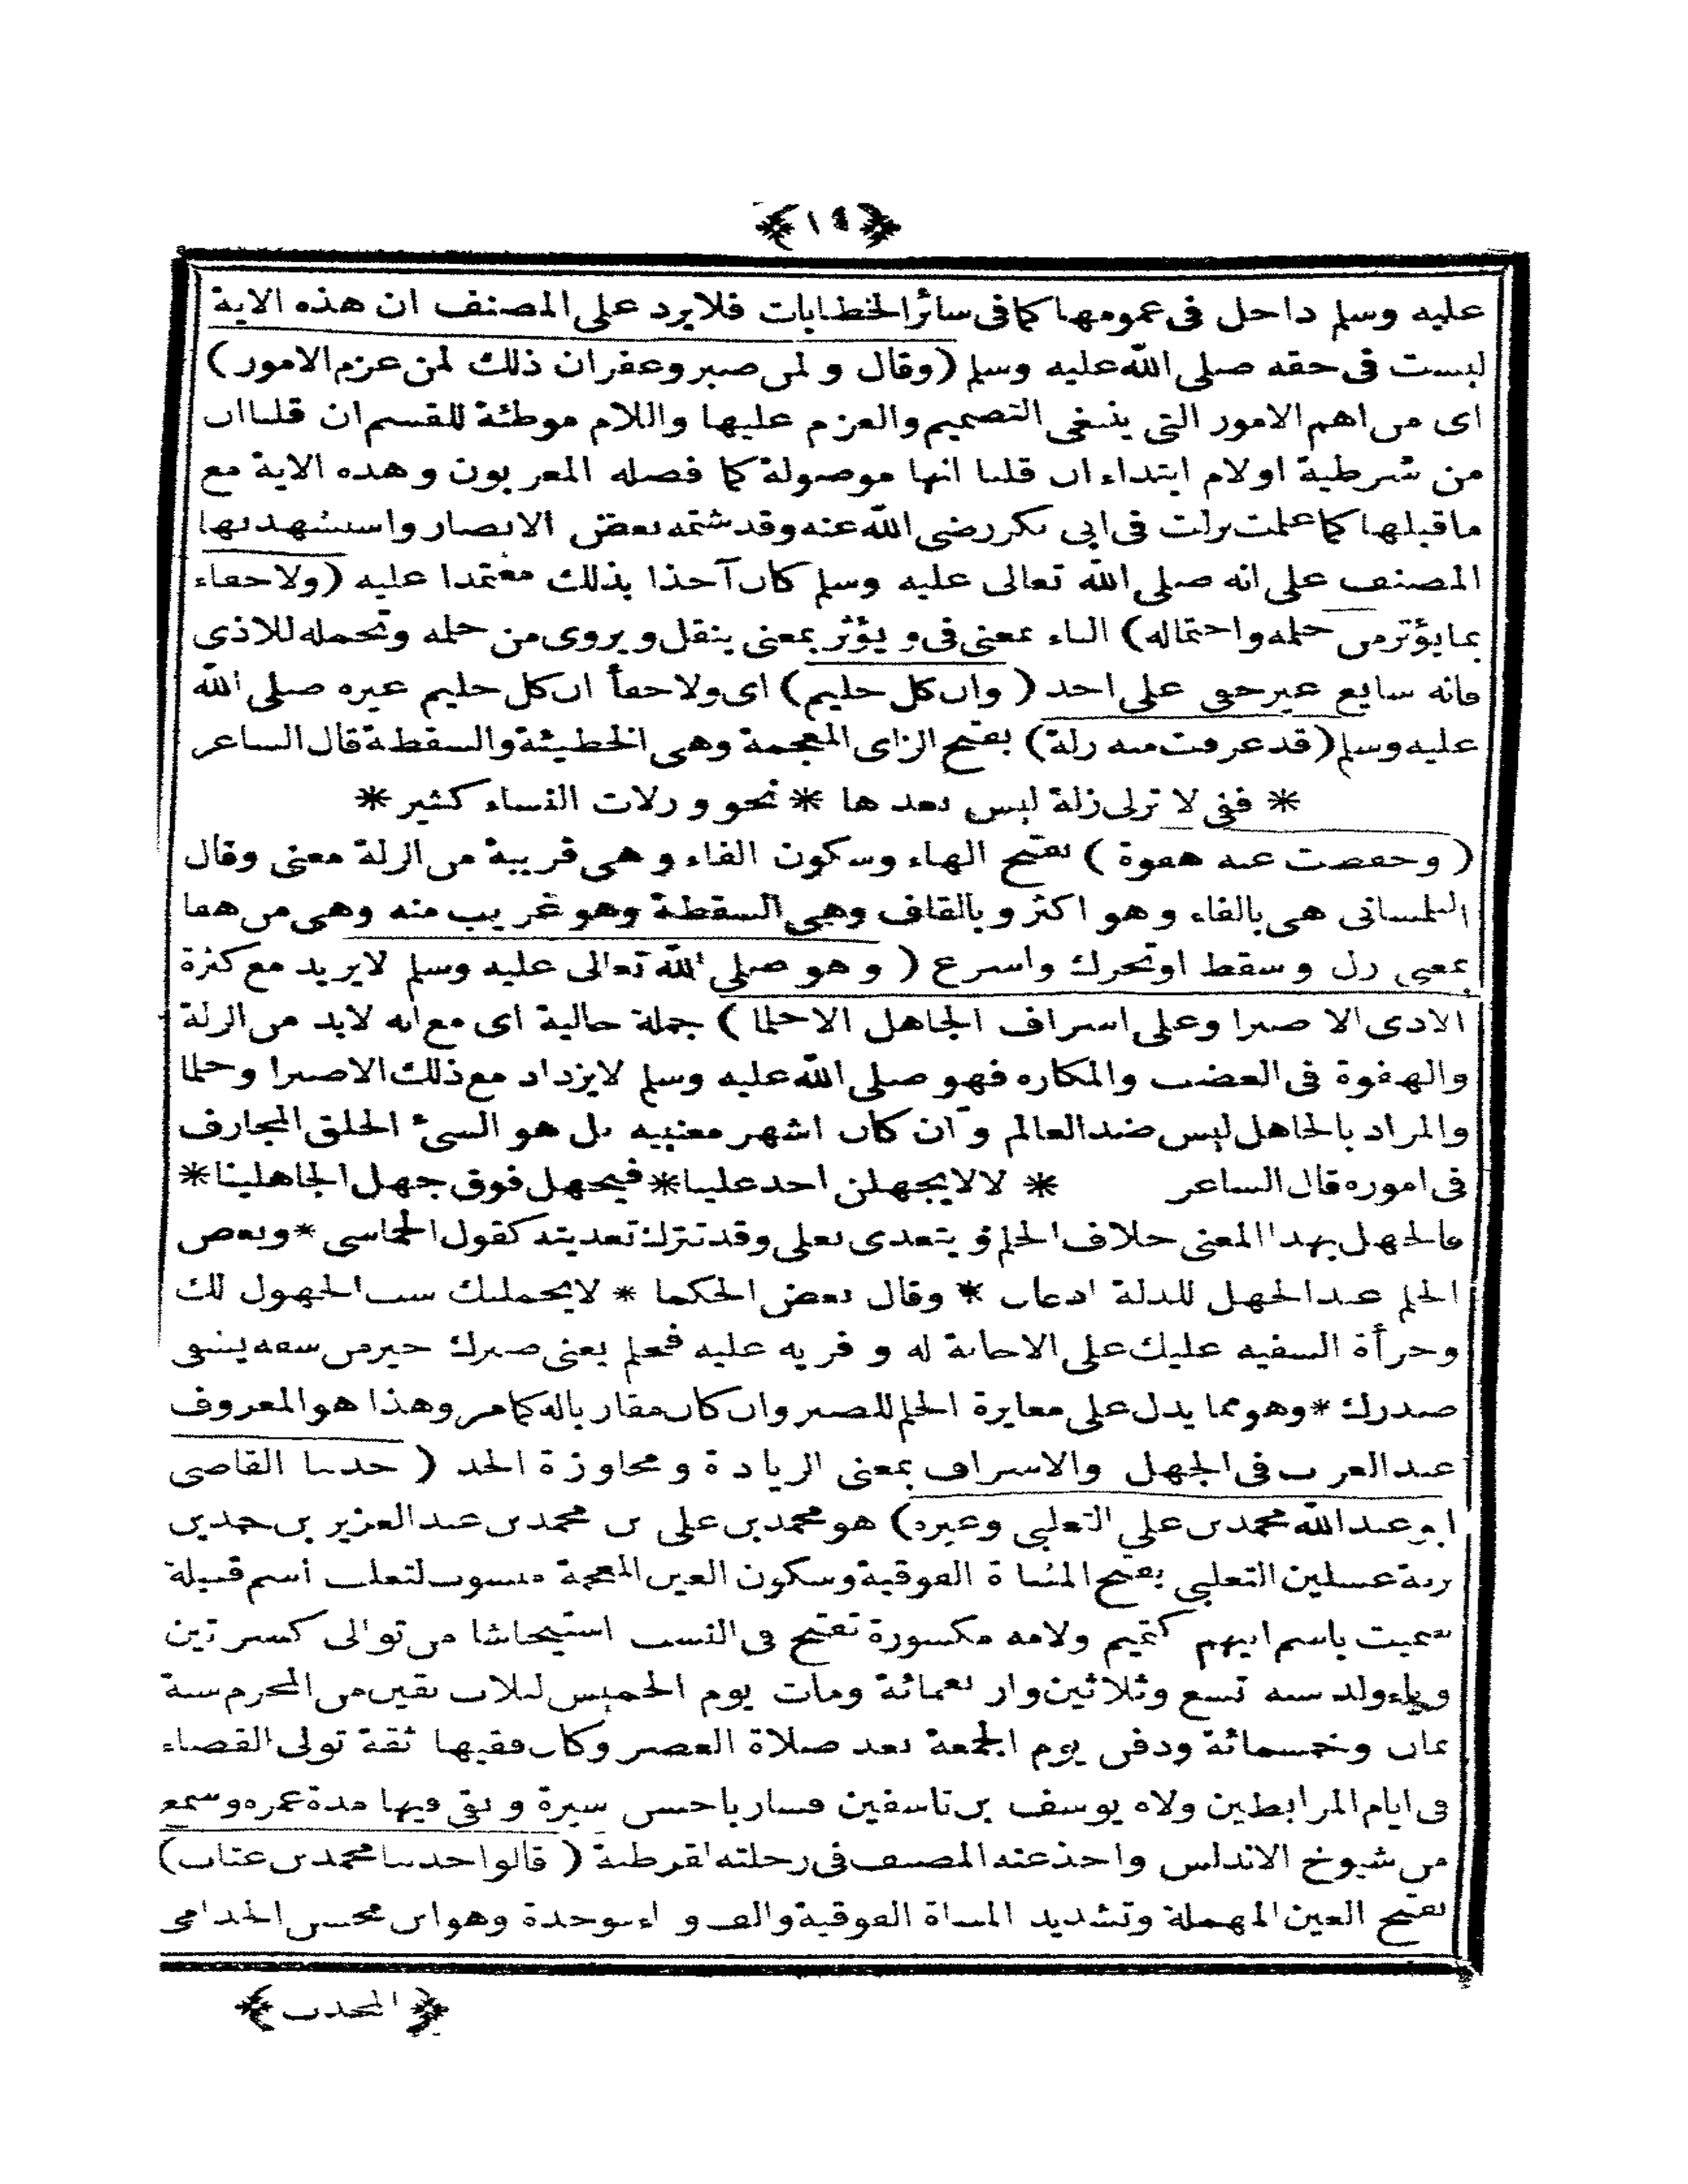 ﴿ ١٩ ﴾
عليه وسلم داخل فى عمومها كما فى سائر الخطابات فلا يرد على المصنف ان هذه الاية
ليست فى حقه صلى الله عليه وسلم (وقال ولمن صبر وغفر ان ذلك لمن عزم الامور)
اى من اهم الامور التى ينبغى التصميم والعزم عليها واللام موطئة للقسم ان قلنا ان
من شرطية او لام ابتداء ان قلنا انها موصولة كما فصله المعربون وهذه الاية مع
ما قبلها كما علمت نزلت فى ابى بكر رضى الله عنه وقد شتمه بعض الانصار واستشهد بها
المصنف على انه صلى الله تعالى عليه وسلم كان آخذا بذلك معتمدا عليه (ولا خفاء
بما يؤثر من حلمه واحتماله) الباء بمعنى فى و يؤثر بمعنى ينقل ويروى من حلمه وتحمله للاذى
فانه سايع غير خفى على احد (وان كل حليم) اى ولا خفأ ان كل حليم غيره صلى الله
عليه وسلم (قد عرفت منه زلة) بفتح الزاى المعجمة وهى الخطيئة والسقطة قال الساعر
* ففى لا ترلى زلة ليس بعدها * نحو وزلات النساء كثير *
(وحفصت عنه هفوة) بفتح الهاء وسكون الفاء وهى قريبة من الزلة معنى وقال
التلمسانى هى بالفاء وهو اكثر وبالقاف وهى السقطة وهو غريب منه وهى من هفا
بمعنى زل وسقط او تحرك واسرع (وهو صلى الله تعالى عليه وسلم لا يزيد مع كثرة
الاذى الا صبرا وعلى اسراف الجاهل الا حلما) جملة حالية اى مع انه لابد من الزلة
والهفوة فى الغضب والمكاره فهو صلى الله عليه وسلم لا يزداد مع ذلك الا صبرا وحلما
والمراد بالجاهل ليس ضد العالم وان كان اشهر معنييه بل هو السئ الخلق المجارف
فى اموره قال الساعر * لا لا يجهلن احد علينا * فيجهل فوق جهل الجاهلينا *
فالجهل بهذا المعنى خلاف الحلم ويتعدى بعلى وقد تترك تعديته كقول الحماسى * وبعض
الحلم عند الجهل للذلة اذعان * وقال بعض الحكما * لا يحملنك سب الجهول لك
وجرأة السفيه عليك على الاجابة له و فريه عليه فحلم يعنى صبرك خير من سفه يشفى
صدرك * وهو مما يدل على مغايرة الحلم للصبر وان كان مقاربا له كما مر وهذا هو المعروف
عند العرب فى الجهل والاسراف بمعنى الزيادة ومجاوزة الحد (حدثنا القاضى
ابو عبد الله محمد بن على التغلبى وغيره) هو محمد بن على بن محمد بن عبد العزيز بن حمدين
التغلبى بفتح المثناة الفوقية وسكون الغين المعجمة منسوب لتغلب اسم قبيلة
سميت باسم ابيهم كتميم ولامه مكسورة تفتح فى النسب استيحاشا من توالى كسرتين
وياء ولد سنه تسع وثلاثين واربعمائة ومات يوم الخميس لثلاث بقين من المحرم سنة
ثمان وخمسمائة ودفن يوم الجمعة بعد صلاة العصر وكان فقيها ثقة تولى القضاء
فى ايام المرابطين ولاه يوسف بن تاسفين فسار باحسن سيرة وبقى فيها مدة عمره وسمع
من شيوخ الاندلس واخذ عنه المصنف فى رحلته لقرطبة (قالوا حدثنا محمد بن عتاب)
بفتح العين المهملة وتشديد المثناة الفوقية والف و باء موحدة وهو ابن محسن الجذامى
﴿ المحدث ﴾